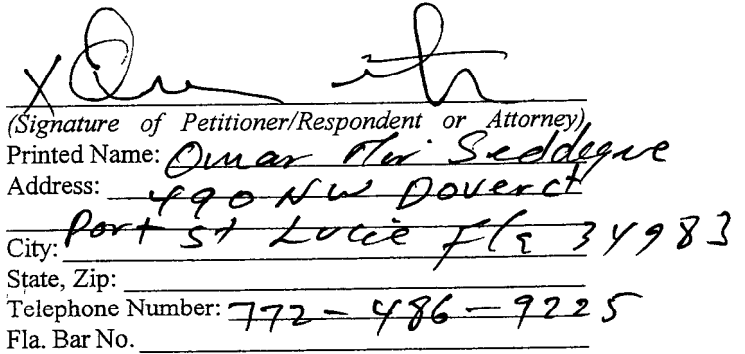 X
(Signature of Petitioner/Respondent or Attorney)
Printed Name: Omar Mir Seddique
Address: 490 NW Dover ct
City: Port St Lucie Fla 34983
State, Zip:
Telephone Number: 772-486-9225
Fla. Bar No.